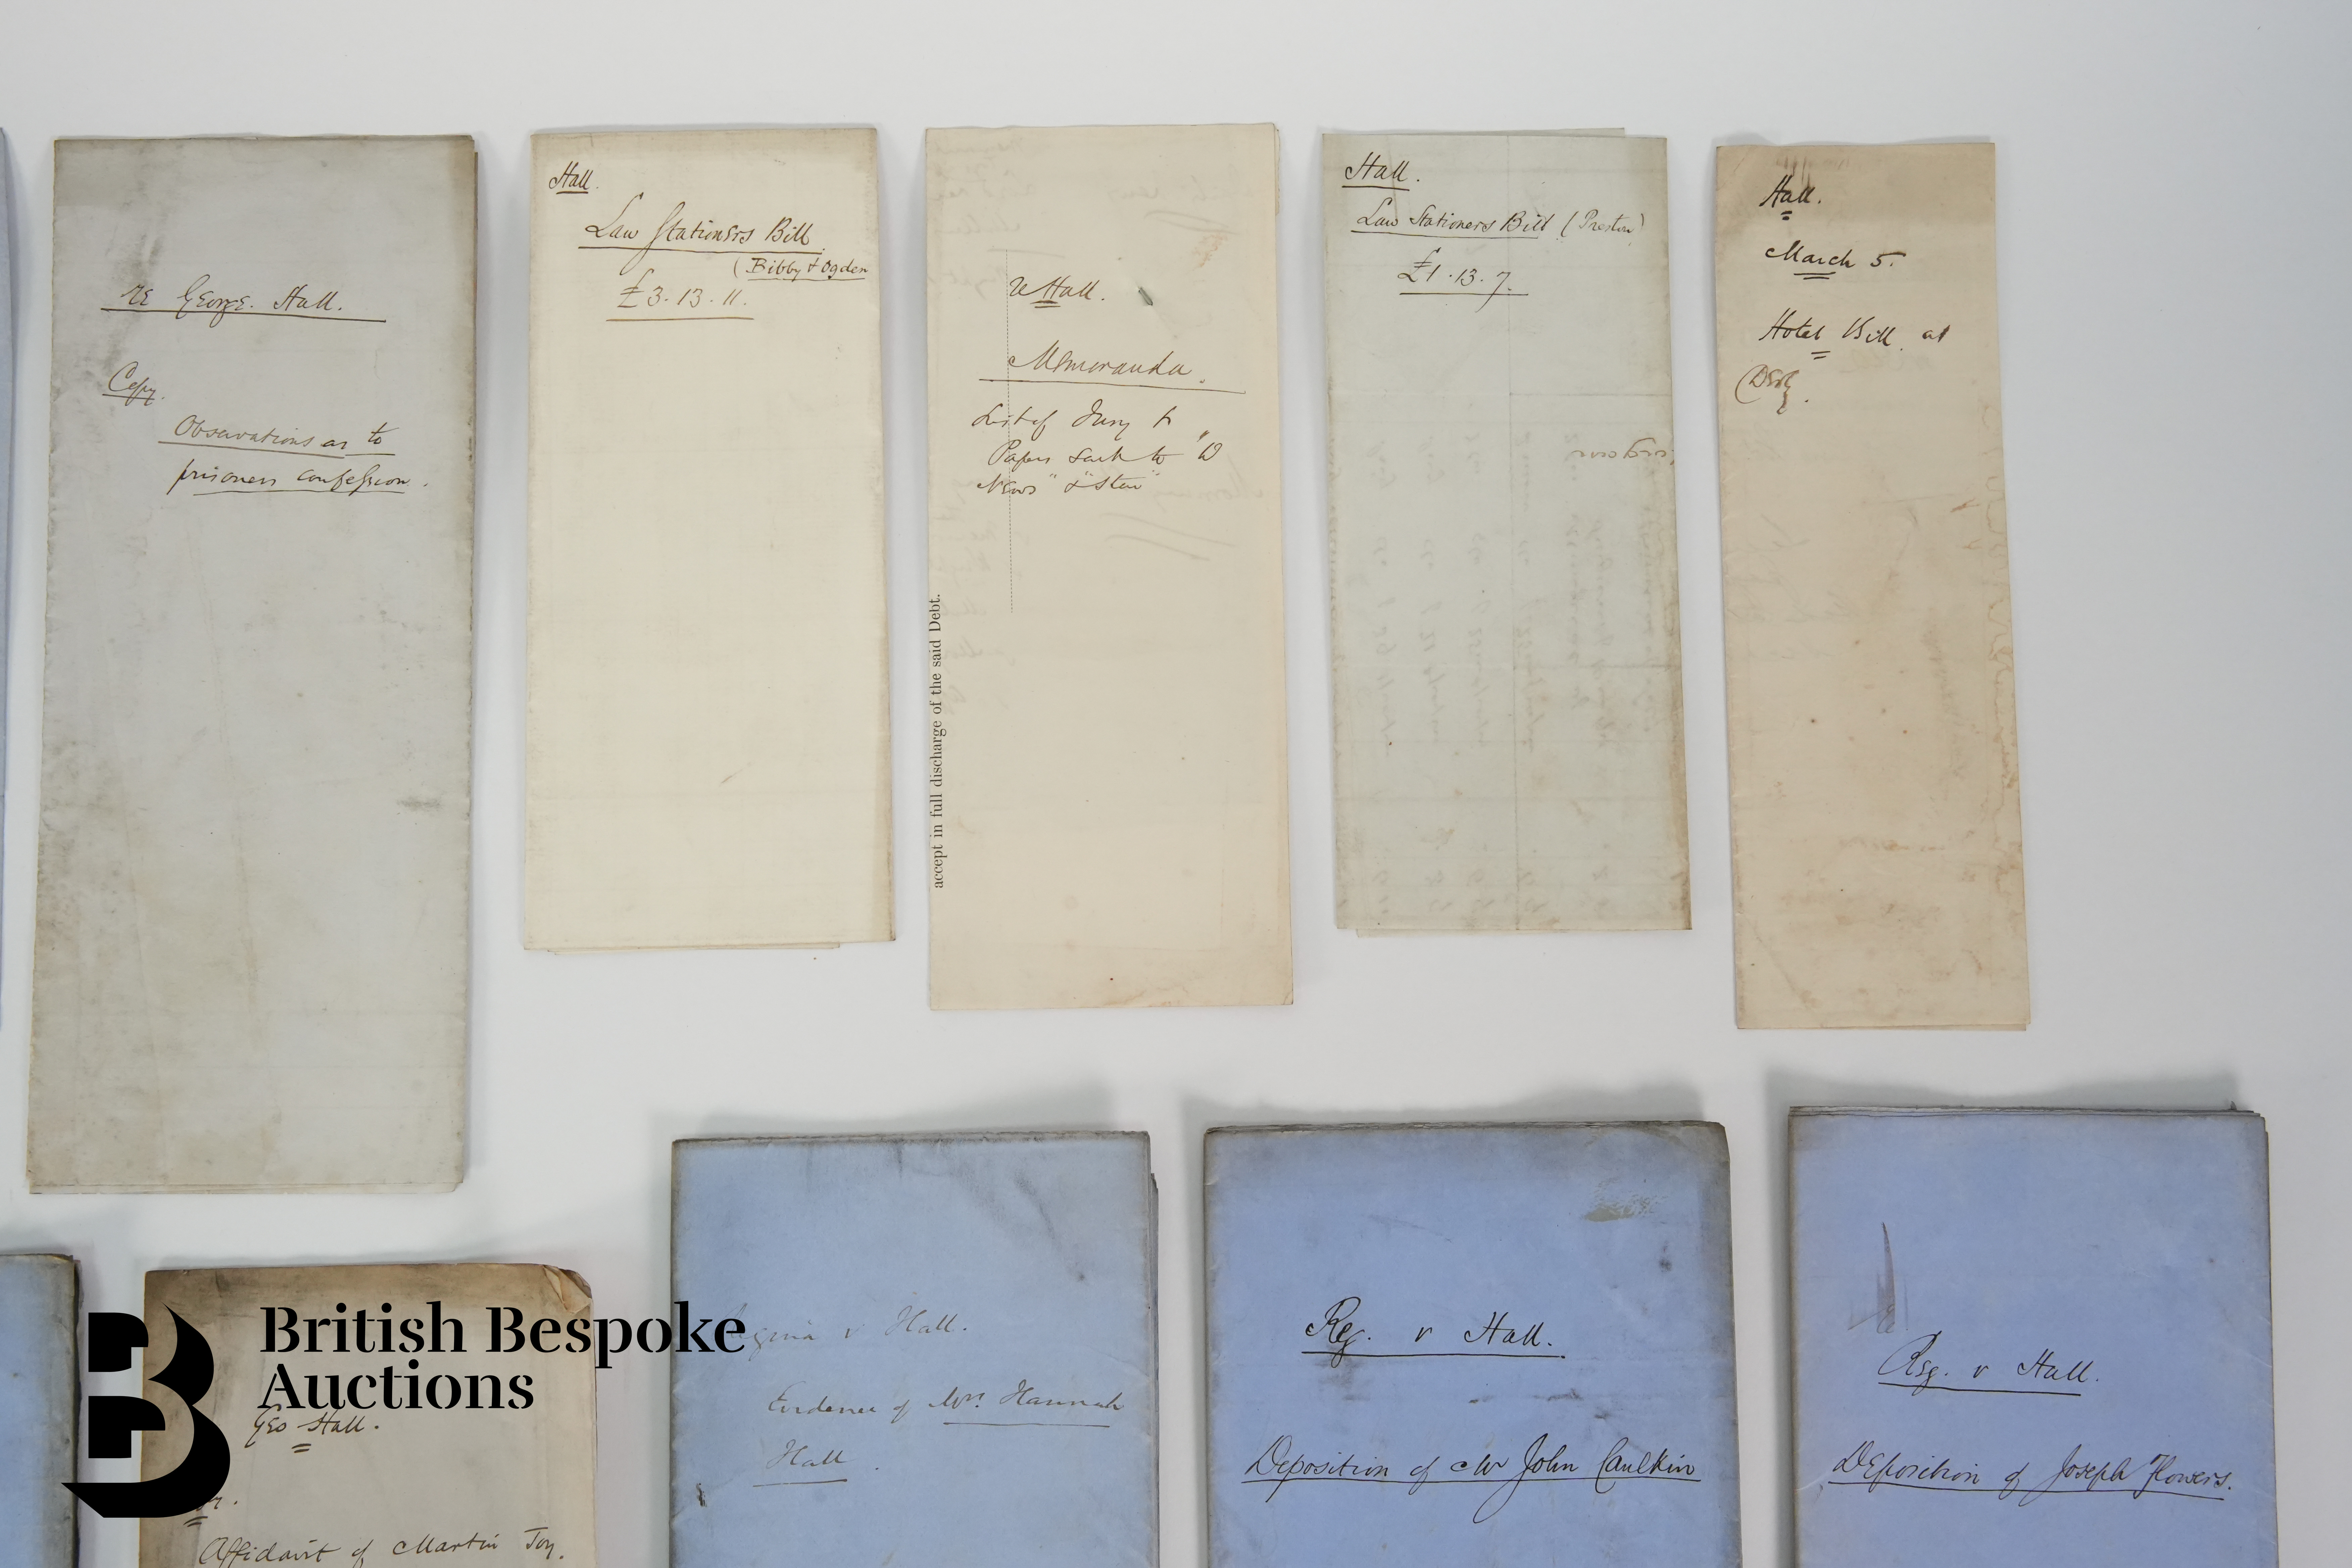 re George. Hall.
Copy.
Observations as to
prisoners confession.
Hall.
Law Stationers Bill
(Bibby & Ogden
£3.13.11.
re Hall.
Memoranda.
List of Jury &
Papers sent to "D
News" & "Star"
accept in full discharge of the said Debt.
Hall.
Law Stationers Bill (Preston)
£1.13.7.
Hall.
March 5.
Hotel Bill at
Derby.
British Bespoke
Auctions
Geo Hall.
Affidavit of Martin Toy.
v Hall.
Evidence of Mrs. Hannah
Hall.
Reg. v Hall.
Deposition of Mr John Caulkin
Reg. v Hall.
Deposition of Joseph Flowers.